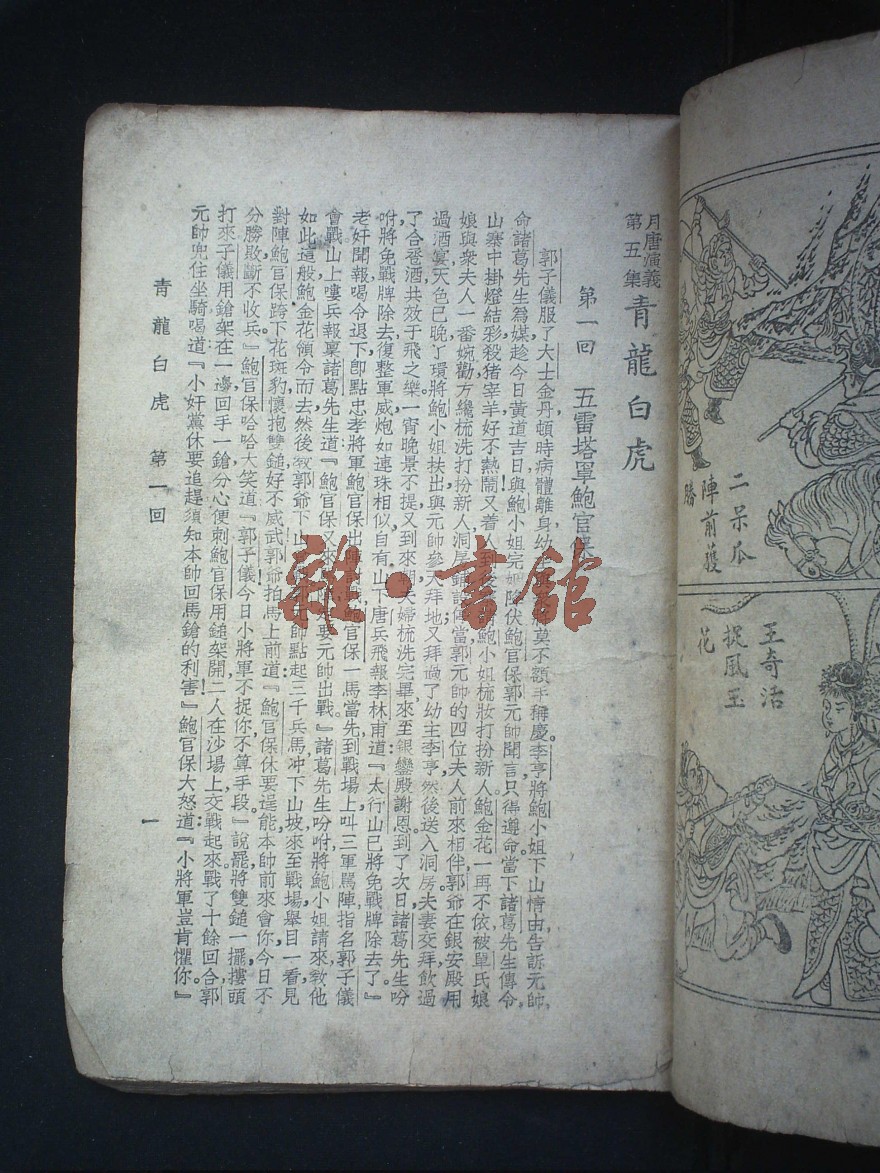 月唐演義
第五集
青龍白虎
第一回　五雷塔罩鮑官保
郭子儀服了大士金丹，頓時病體離身，幼　莫不額手稱慶，李亨將鮑小姐下山情由，告訴元帥，
命諸葛先生為媒，趁今日黃道吉日，與鮑小姐完　降伏鮑官保，郭元帥聞言，只得遵命，當下諸葛先生傳令，
山寨中掛燈結彩，殺猪宰羊，好不熱鬧，又着人到　鮑小姐梳妝打扮新人，鮑金花一再不依，被單氏娘
娘與衆夫人一番婉勸，方纔梳洗打扮新人，洞房　當郭元帥的四位夫人前來相伴，郭爺在銀安殿用
過酒宴，天色已晚了，環將鮑小姐扶出，與元帥參天拜地，又拜過了幼主李亨，然後送入洞房，夫妻交拜，飲過
了合卺酒，共效于飛之樂，一宵晚景不提，又到來朝，夫婦梳洗完畢，來至銀鑾殿謝恩，到了次日，諸葛先生吩
咐將免戰牌除去，復整軍威，炮如連珠相似，自有山下唐兵飛報李林甫道：『太行山已將免戰牌除去了。』
老奸聞報，喝令退下，卽點忠孝將軍鮑官保出陣　鮑官保一馬當先，到戰場上叫三軍駡陣，指名郭子儀
會戰，山上嘍兵報稟諸葛先生道：『鮑官保又來　要元帥出戰』諸葛先生吩咐將鮑小姐請來，教他
如此這般，鮑金花領令而去，然後教郭爺下山　帥點起三千兵馬，冲下山坡，來至戰場，舉目一看，見
對陣鮑官保跨下花斑豹，懷抱雙鎚，好不威武，郭爺拍馬上前道：『鮑官保休要逞能，本帥前來會你，今日不
分勝敗，斷不收兵。』鮑官保哈哈大笑道：『郭子儀，今日小將軍不捉你，不算手段。』說罷，將雙鎚一擺，摟頭
打來，子儀用鎗架在一邊，回手一鎗，分心便刺，鮑官保用鎚架開，二人在沙場上交戰起來，戰了十餘回合，郭
元帥兜住坐騎喝道：『小奸黨休要追趕，須知本帥回馬鎗的利害。』鮑官保大怒道：『小將軍豈肯懼你。』
青龍白虎　第一回
一
二呆瓜
陣前獲
勝
王奇活
捉風玉
花
雜·書館